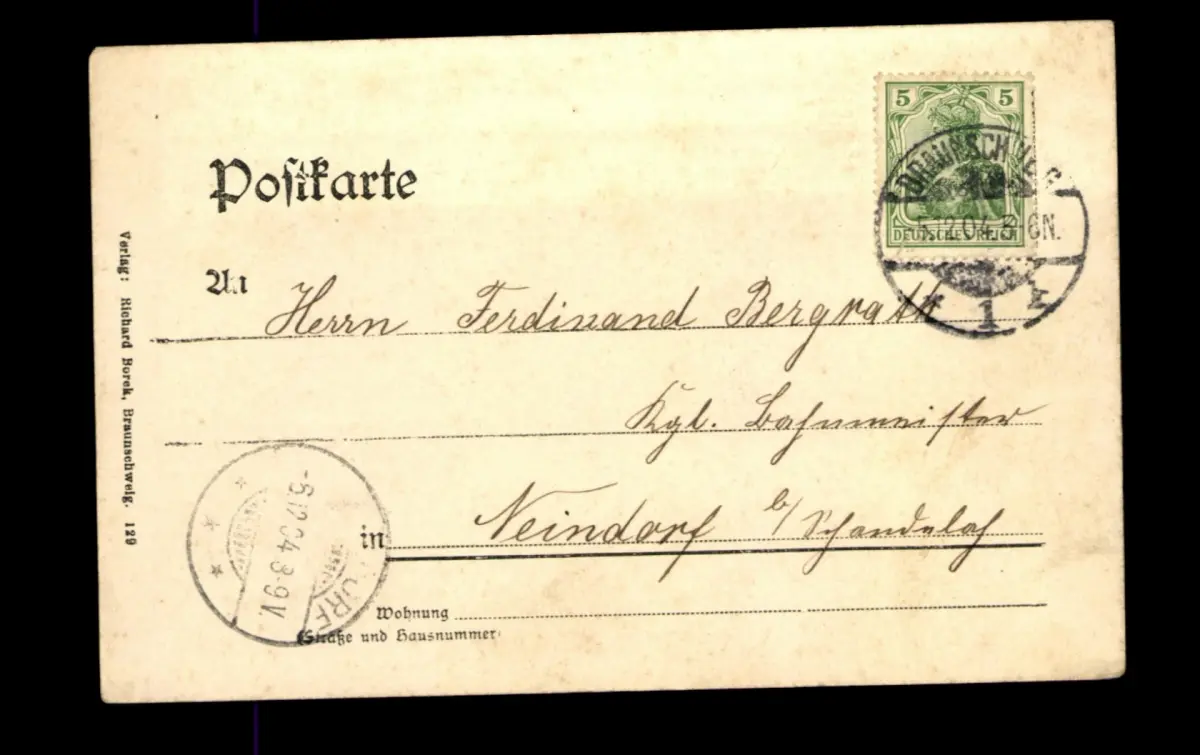 Postkarte
5 5
DEUTSCHES REICH
BRAUNSCHWEIG
12.04. 5-6N.
* 1 *
An Herrn Ferdinand Bergrath
Kgl. Bahnmeister
in Neindorf b/ Schandelah
Wohnung
(Straße und Hausnummer)
-6.12.04.8-9V.
DORF
Verlag: Richard Borek, Braunschweig. 129